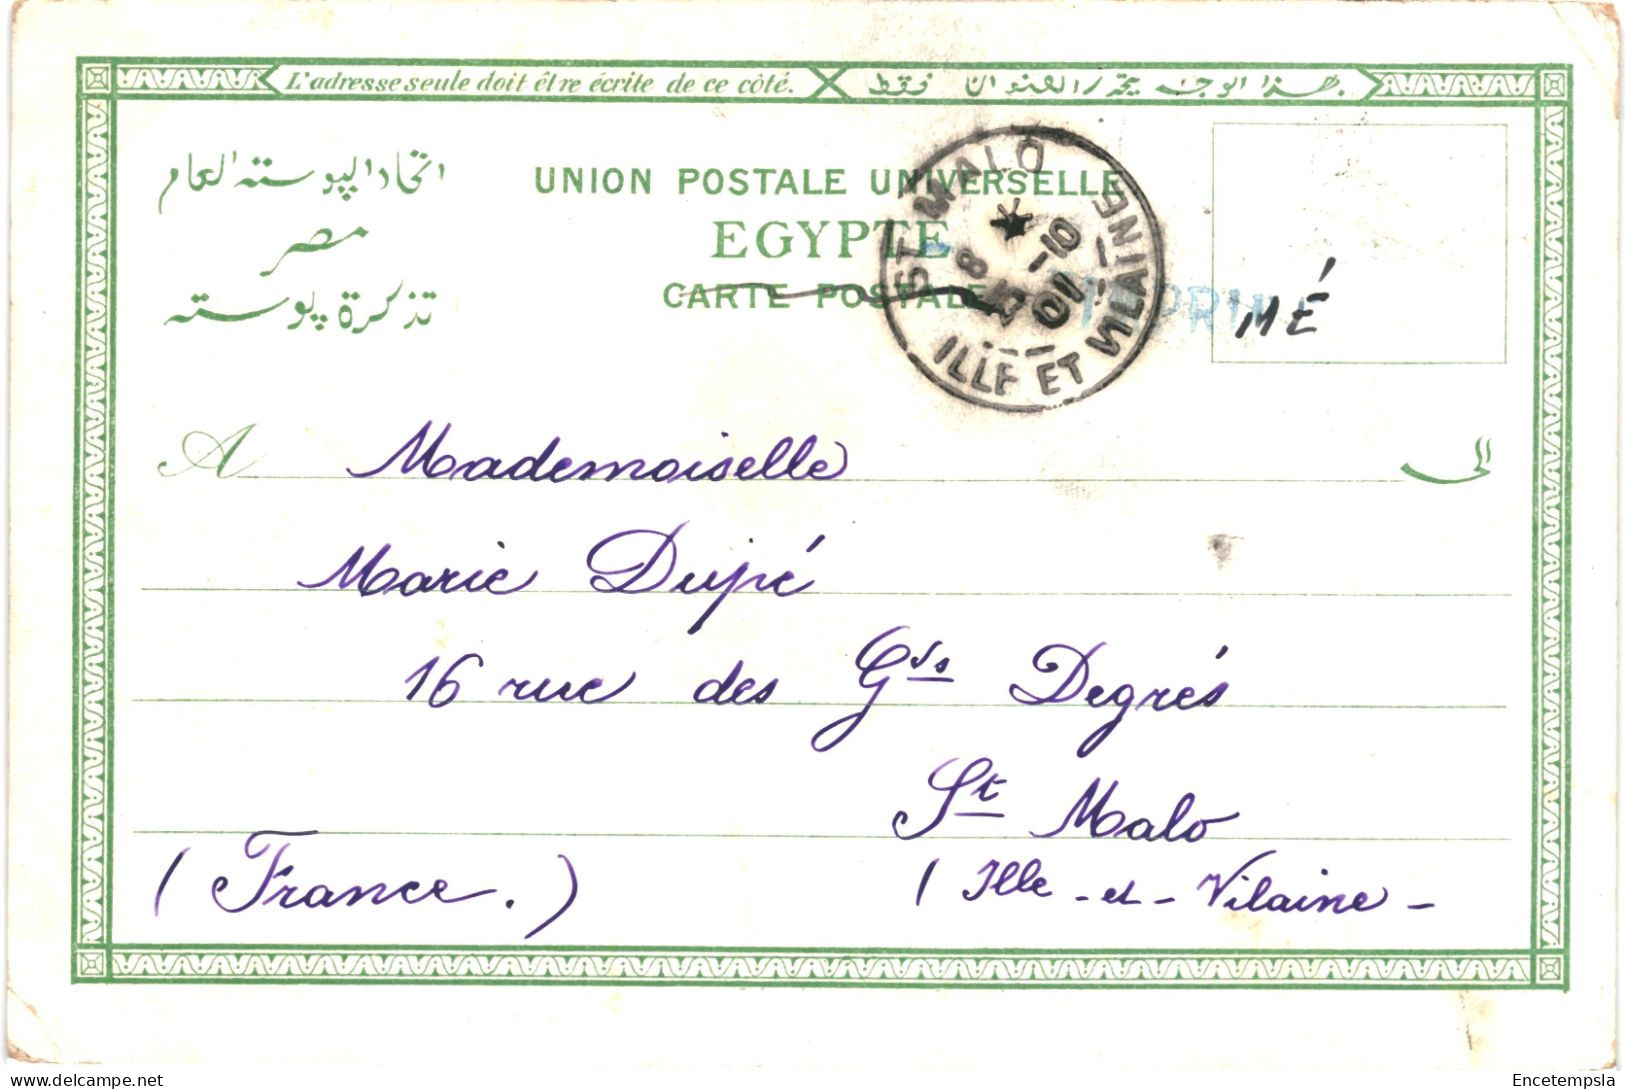 L'adresse seule doit être écrite de ce côté.
هذا الوجه يحرر العنوان فقط
اتحاد البوسته العام
مصر
تذكرة بوسته
UNION POSTALE UNIVERSELLE
EGYPTE
CARTE POSTALE
ST MALO
ILLE ET VILAINE
IMPRI
MÉ
A
الى
Mademoiselle
Marie Dupé
16 rue des Gds Degrés
St Malo
(France.)
(Ille-et-Vilaine-
Encetempsla